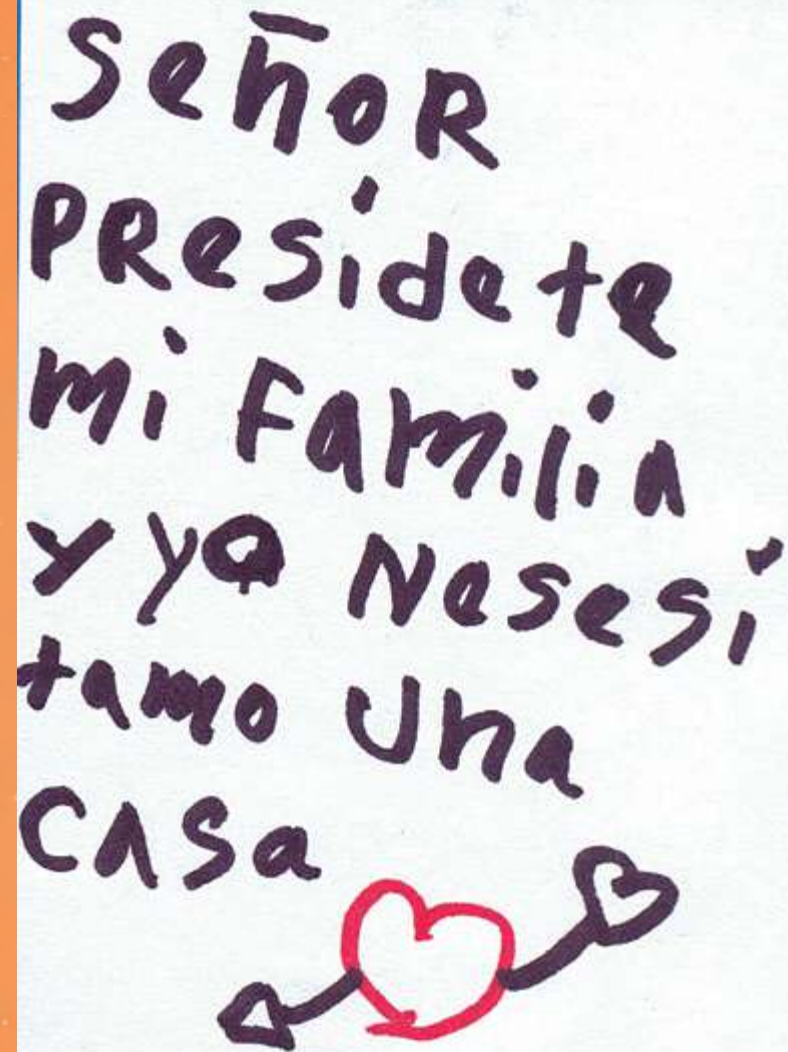 señoR
PResidete
mi Familia
y yo Nesesi
tamo una
CASa